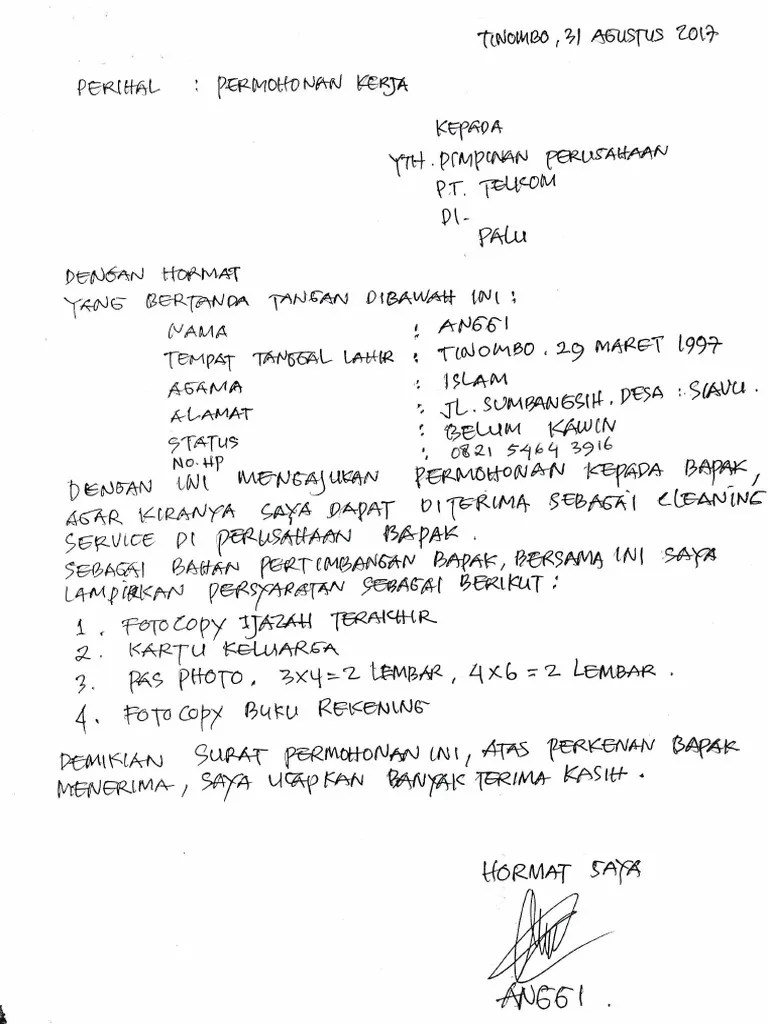 TINOMBO, 31 AGUSTUS 2017
PERIHAL : PERMOHONAN KERJA
KEPADA
YTH. PIMPINAN PERUSAHAAN
P.T. TELKOM
DI-
PALU
DENGAN HORMAT
YANG BERTANDA TANGAN DIBAWAH INI :
NAMA : ANGGI
TEMPAT TANGGAL LAHIR : TINOMBO, 29 MARET 1997
AGAMA : ISLAM
ALAMAT : JL. SUMBANGSIH. DESA : SIAVU.
STATUS : BELUM KAWIN
NO. HP : 0821 5464 3916
DENGAN INI MENGAJUKAN PERMOHONAN KEPADA BAPAK,
AGAR KIRANYA SAYA DAPAT DITERIMA SEBAGAI CLEANING
SERVICE DI PERUSAHAAN BAPAK.
SEBAGAI BAHAN PERTIMBANGAN BAPAK, BERSAMA INI SAYA
LAMPIRKAN PERSYARATAN SEBAGAI BERIKUT :
1. FOTOCOPY IJAZAH TERAKHIR
2. KARTU KELUARGA
3. PAS PHOTO, 3x4=2 LEMBAR, 4x6=2 LEMBAR.
4. FOTOCOPY BUKU REKENING
DEMIKIAN SURAT PERMOHONAN INI, ATAS PERKENAN BAPAK
MENERIMA, SAYA UCAPKAN BANYAK TERIMA KASIH.
HORMAT SAYA
ANGGI.